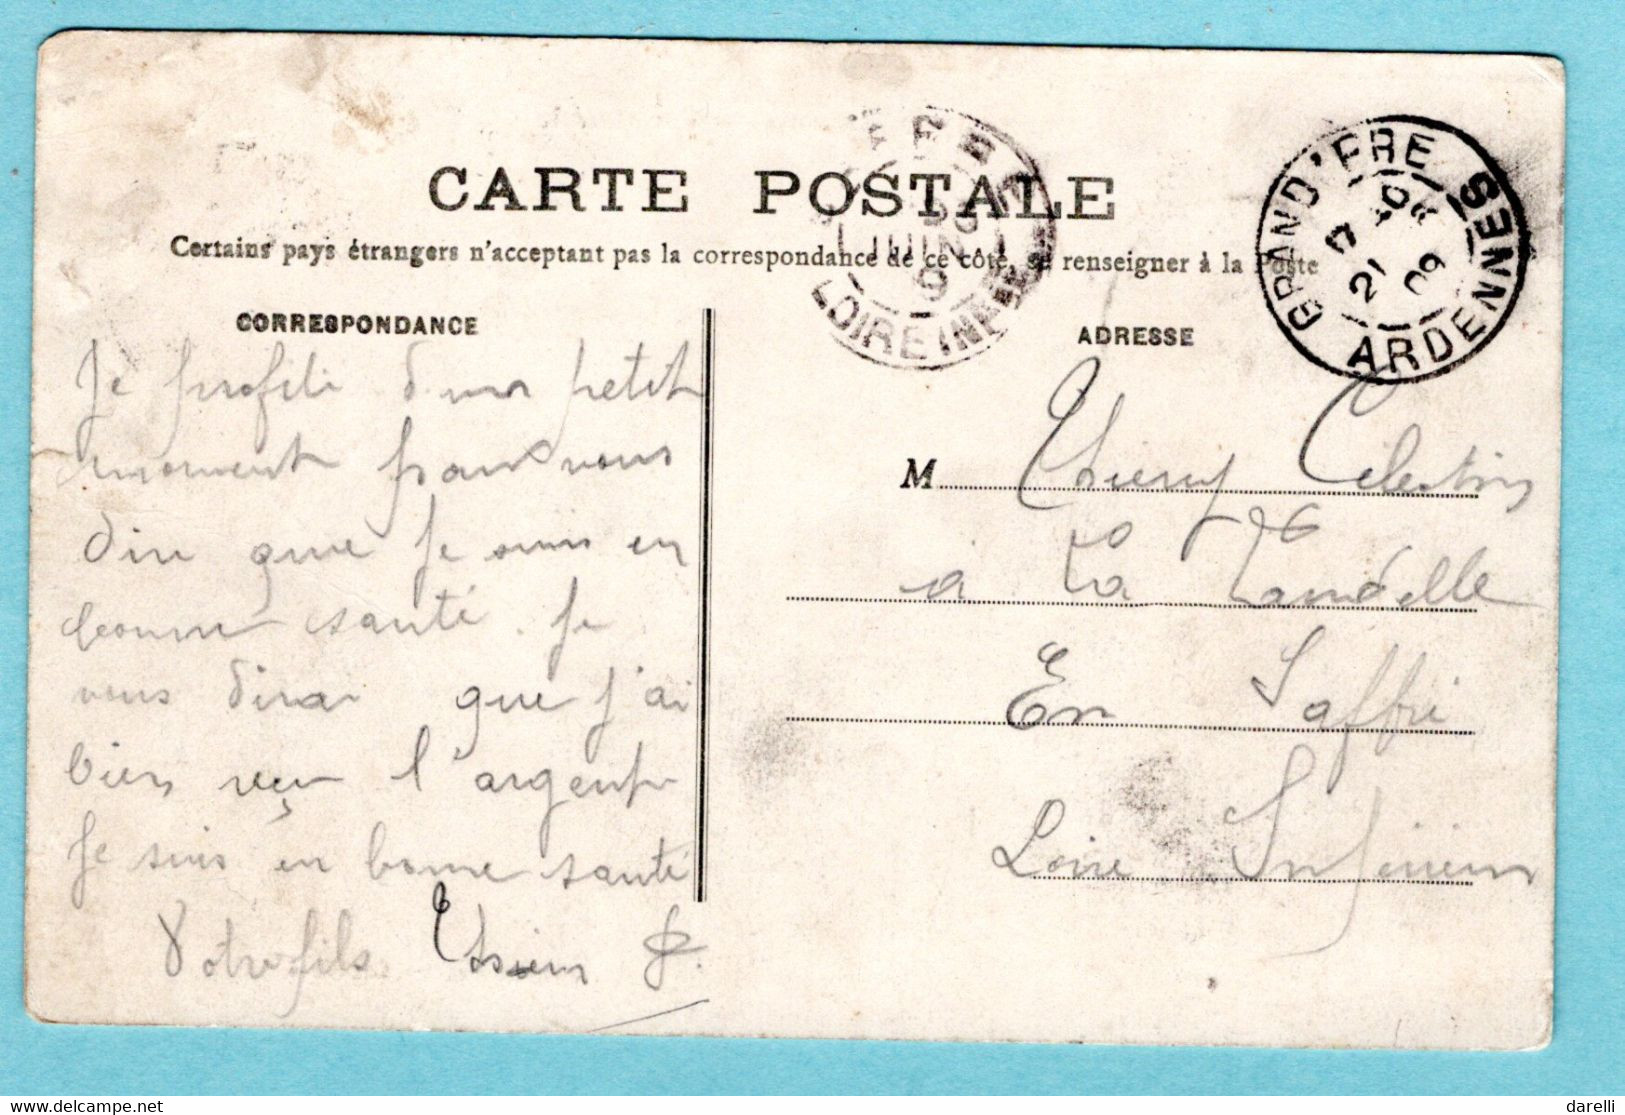 CARTE POSTALE
Certains pays étrangers n'acceptent pas la correspondance de ce côté, se renseigner à la Poste
CORRESPONDANCE
Je profite d'un petit
moment pour vous
dire que je suis en
bonne santé. Je
vous dirai que j'ai
bien reçu l'argent
Je suis en bonne santé
Votre fils
ADRESSE
M Thierry Célestin
à La
En Saffré
Loire Inférieure
GRAND'PRE
17
21
09
ARDENNES
LOIRE INFRE
darelli